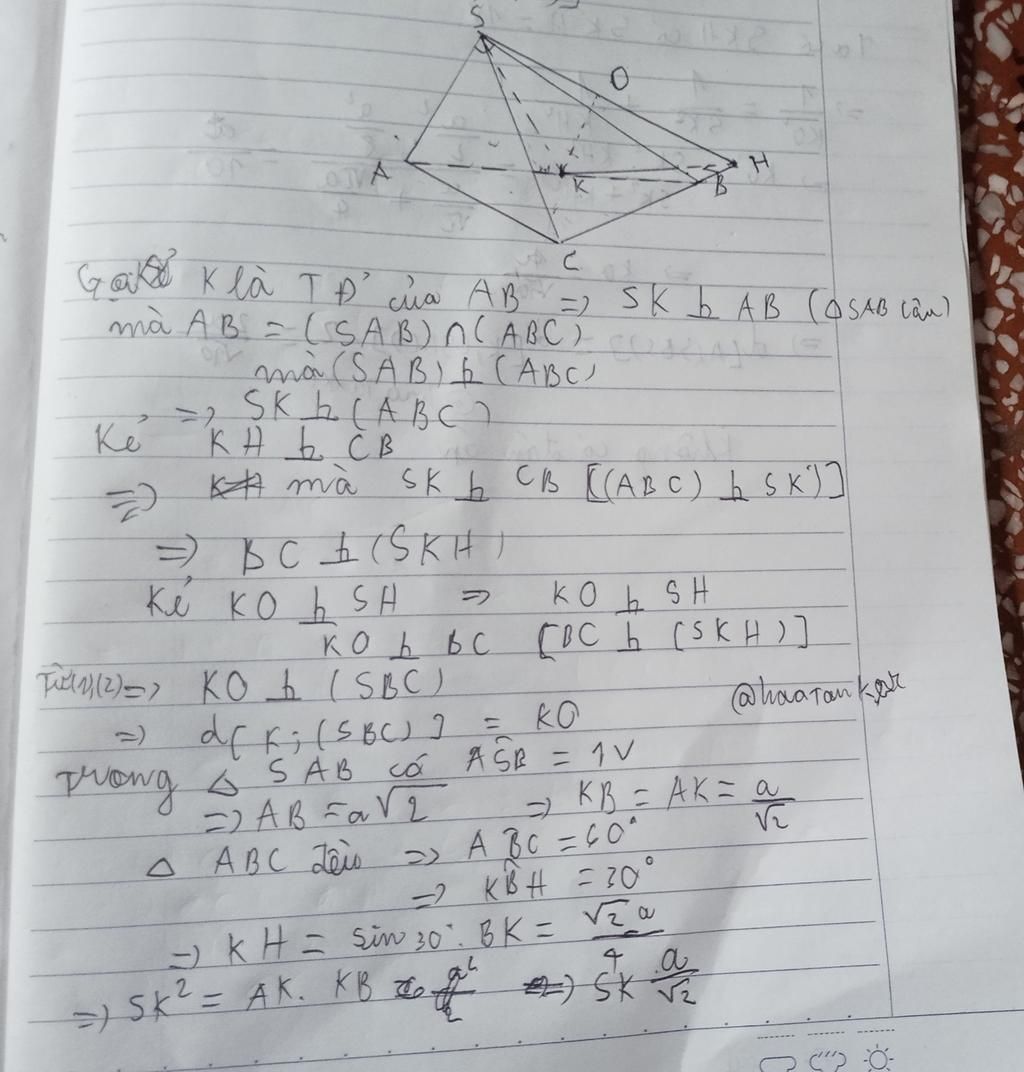 S
O
A
K
B
H
C
Gọi K là TĐ' của AB => SK ⊥ AB (△SAB cân)
mà AB = (SAB)∩(ABC)
mà (SAB) ⊥ (ABC)
=> SK ⊥ (ABC)
Kẻ KH ⊥ CB
=> mà SK ⊥ CB [(ABC) ⊥ SK)]
=> BC ⊥ (SKH)
Kẻ KO ⊥ SH => KO ⊥ SH
KO ⊥ BC [BC ⊥ (SKH)]
Từ(1),(2)=> KO ⊥ (SBC)
=> d[K;(SBC)] = KO
Trong △ SAB có ASB = 1V
=> AB = a√2 => KB = AK = a/√2
△ ABC đều => ABC = 60°
=> KBH = 30°
=> KH = sin30°. BK = √2a/4
=> SK² = AK. KB => SK a/√2